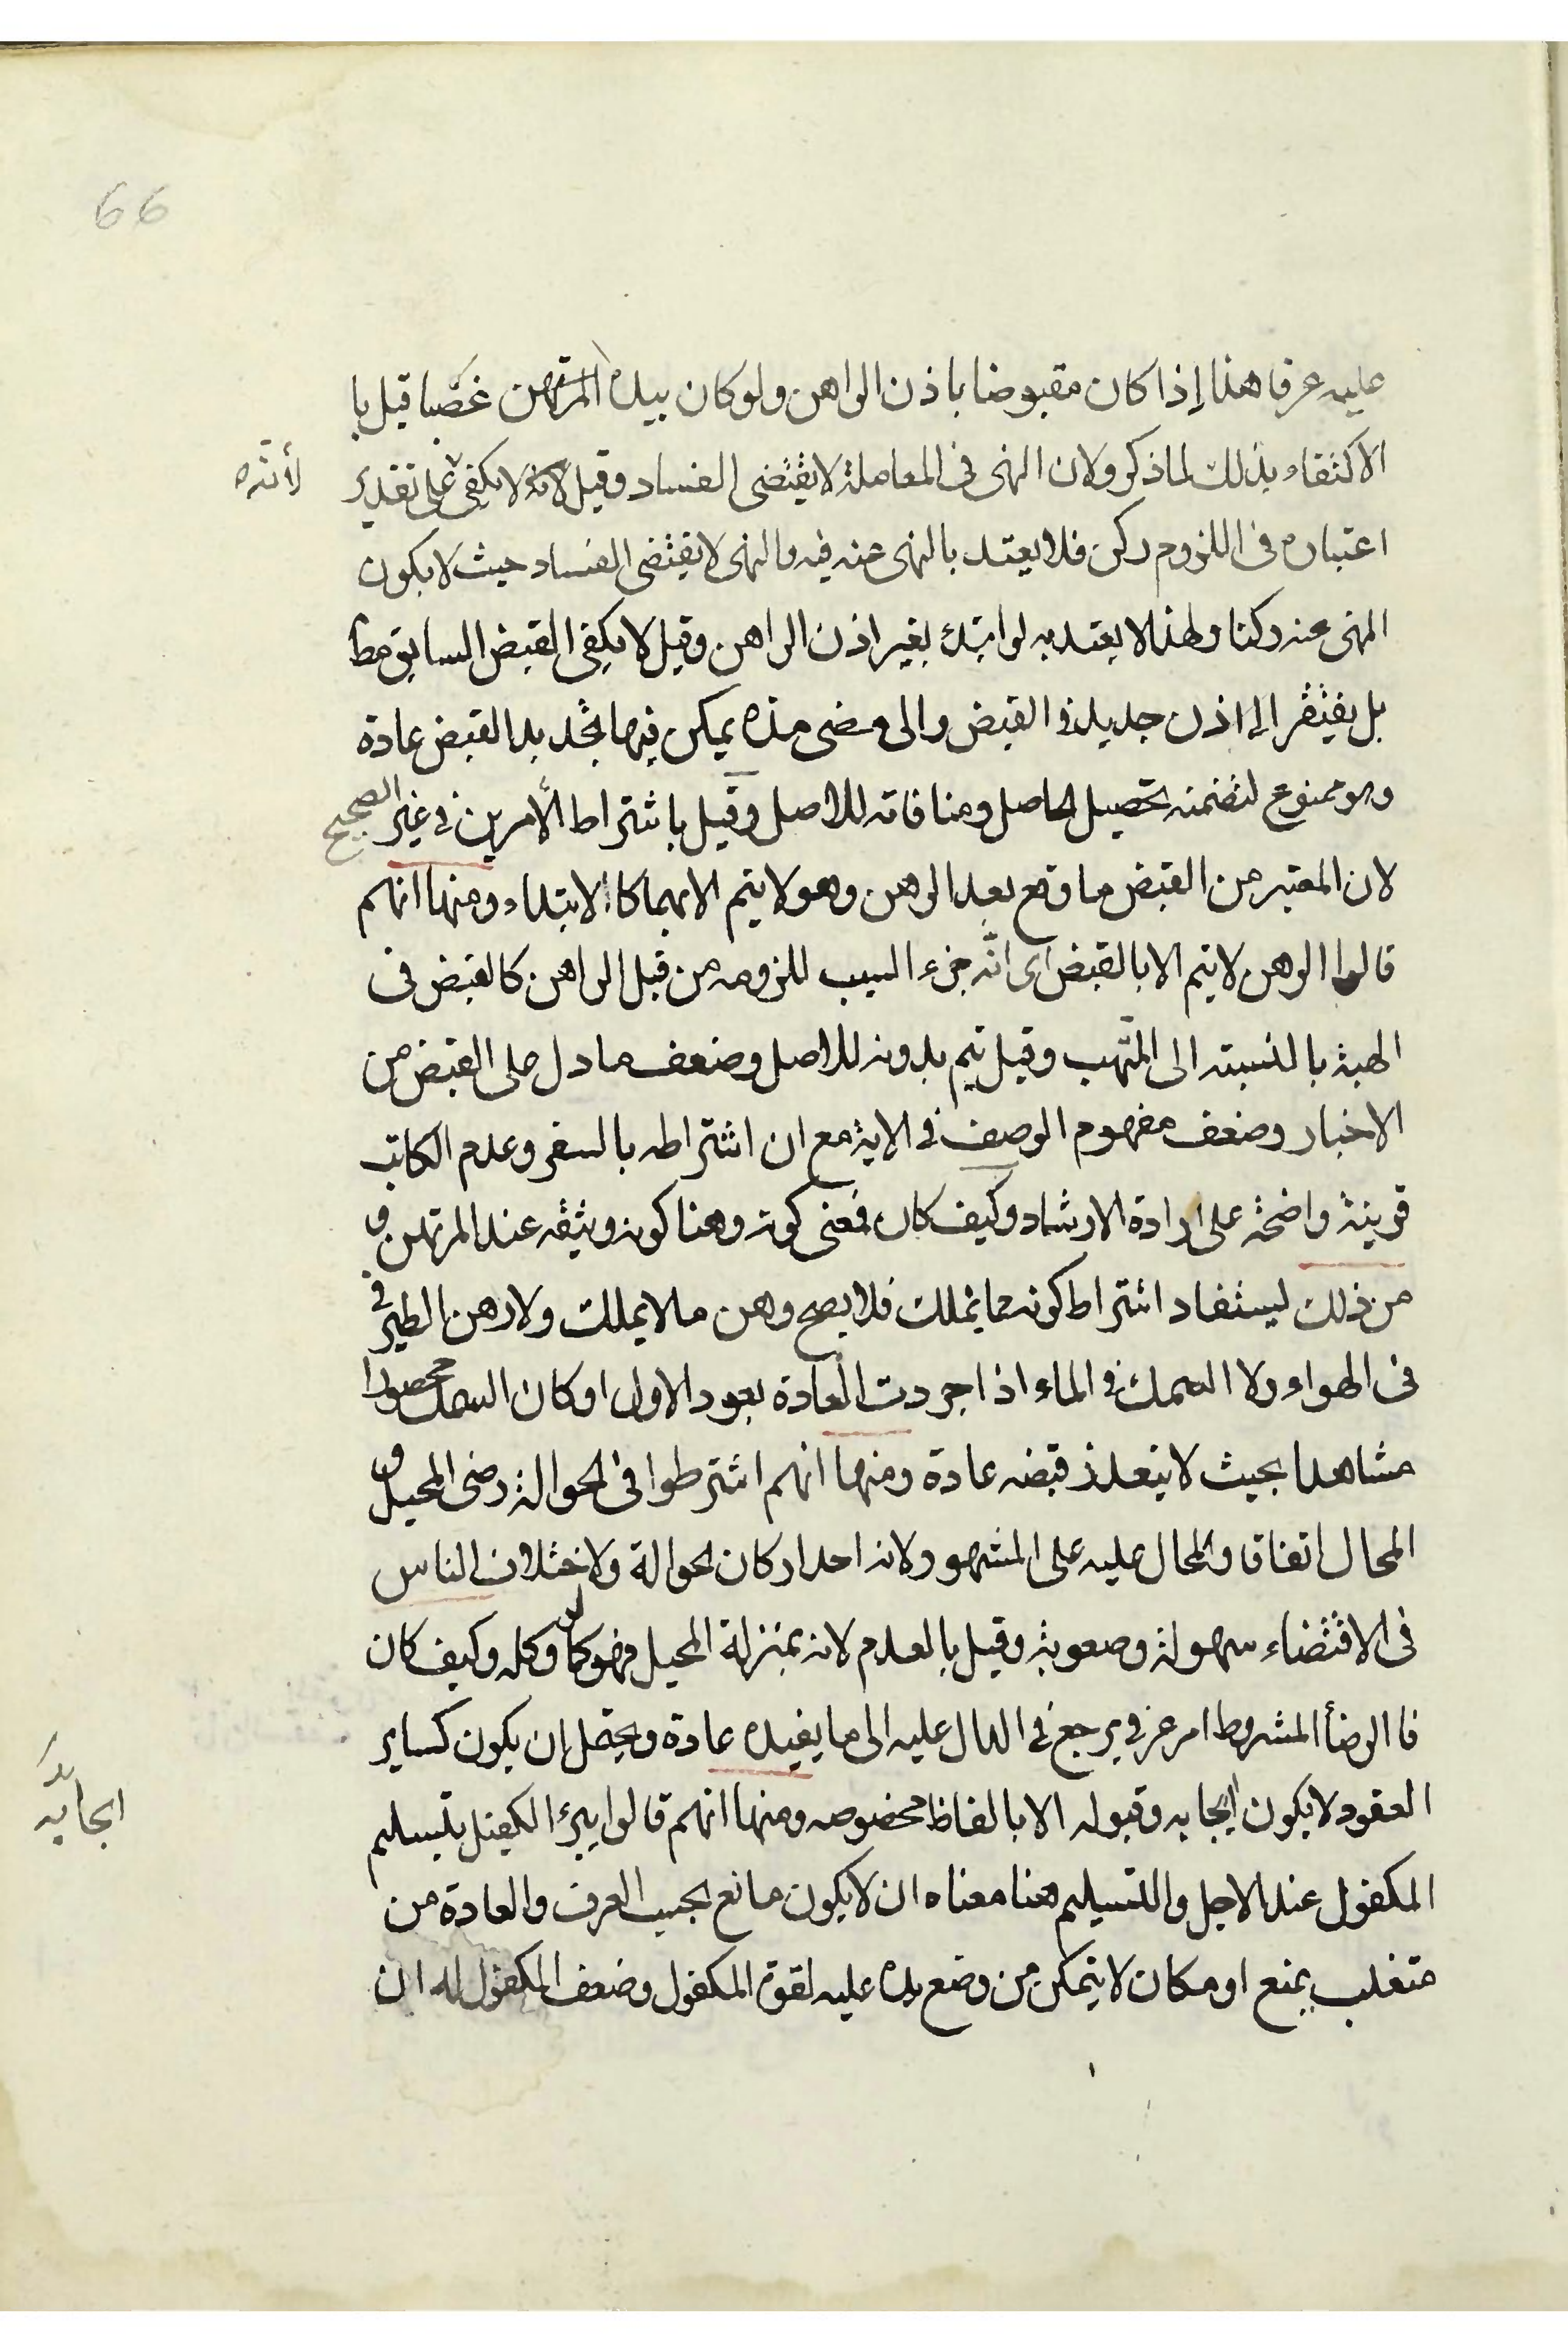 66
عليه عرفا هذا إذا كان مقبوضا باذن الراهن ولو كان بيده المرتهن غصبا قيل با
الاكتفاء بذلك لما ذكر ولان النهى فى المعاملة لا يقتضى الفساد وقيل لانه لا يكفى على تقدير
اعتباره فى اللزوم ركن فلا يعتد بالنهى عنه فيه والنهى لا يقتضى الفساد حيث لا يكون
المنهى عنه ركنا ولهذا لا يعتد به لو ابتدئ بغير اذن الراهن وقيل لا يكفى القبض السابق مط
بل يفتقر الى اذن جديد فى القبض والى مضى مدة يمكن فيها تجدد يد القبض عادة
وهو ممنوع لتضمنه تحصيل الحاصل ومنافاته للاصل وقيل باشتراط الأمرين فى غير الصحيح
لان المعتبر من القبض ما وقع بعد الرهن وهو لا يتم الا بهما كالابتداء ومنها انهم
قالوا الرهن لا يتم الا بالقبض اى انّه جزء السبب للزومه من قبل الراهن كالقبض فى
الهبة بالنسبته الى المتّهب وقيل يتم بدونه للاصل وضعف ما دل على القبض من
الاخبار وضعف مفهوم الوصف فى الاية مع ان اشتراطه بالسفر وعدم الكاتب
قرينة واضحة على ارادة الارشاد وكيف كان فمعنى كونه رهنا كونه وثيقه عند المرتهن و
من ذلك يستفاد اشتراط كونه مما يتملك فلا يصح رهن ما لا يملك ولا رهن الطير فى
فى الهواء ولا السمك فى الماء اذا جردت العادة بعود الاول او كان السمك محصورا
مشاهدا بحيث لا يتعذر قبضه عادة ومنها انهم اشترطوا فى الحوالة رضى المحيل و
المحال اتفاقا والمحال عليه على المشهو ولانه احد اركان الحوالة ولاختلاف الناس
فى الاقتضاء سهولة وصعوبة وقيل بالعدم لانه بمنزلة المحيل فهو كما لو وكله وكيف كان
فالرضأ المشروط امر عرفى يرجع فى الدال عليه الى ما يفيده عادة ويحتمل ان يكون كساير
العقود لا يكون ايجابه وقبوله الا بالفاظ مخصوصه ومنها انهم قالوا يبرئ الكفيل بتسليم
المكفول عند الاجل والتسليم هنا معناه ان لا يكون مانع بحسب العرف والعادة من
متغلب يمنع او مكان لا يتمكن من وضع يده عليه لقوة المكفول وضعف المكفول له ان
ايجابيّه